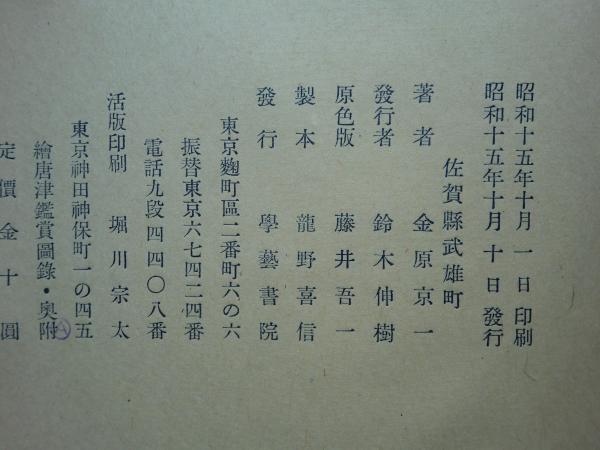 昭和十五年十月一日印刷
昭和十五年十月十日發行
佐賀縣武雄町
著者 金原京一
發行者 鈴木伸樹
原色版 藤井吾一
製本 龍野喜信
發行 學藝書院
東京麴町區二番町六の六
振替東京六七四二四番
電話九段四四〇八番
活版印刷 堀川宗太
東京神田神保町一の四五
繪唐津鑑賞圖錄・奧附
定價金十圓